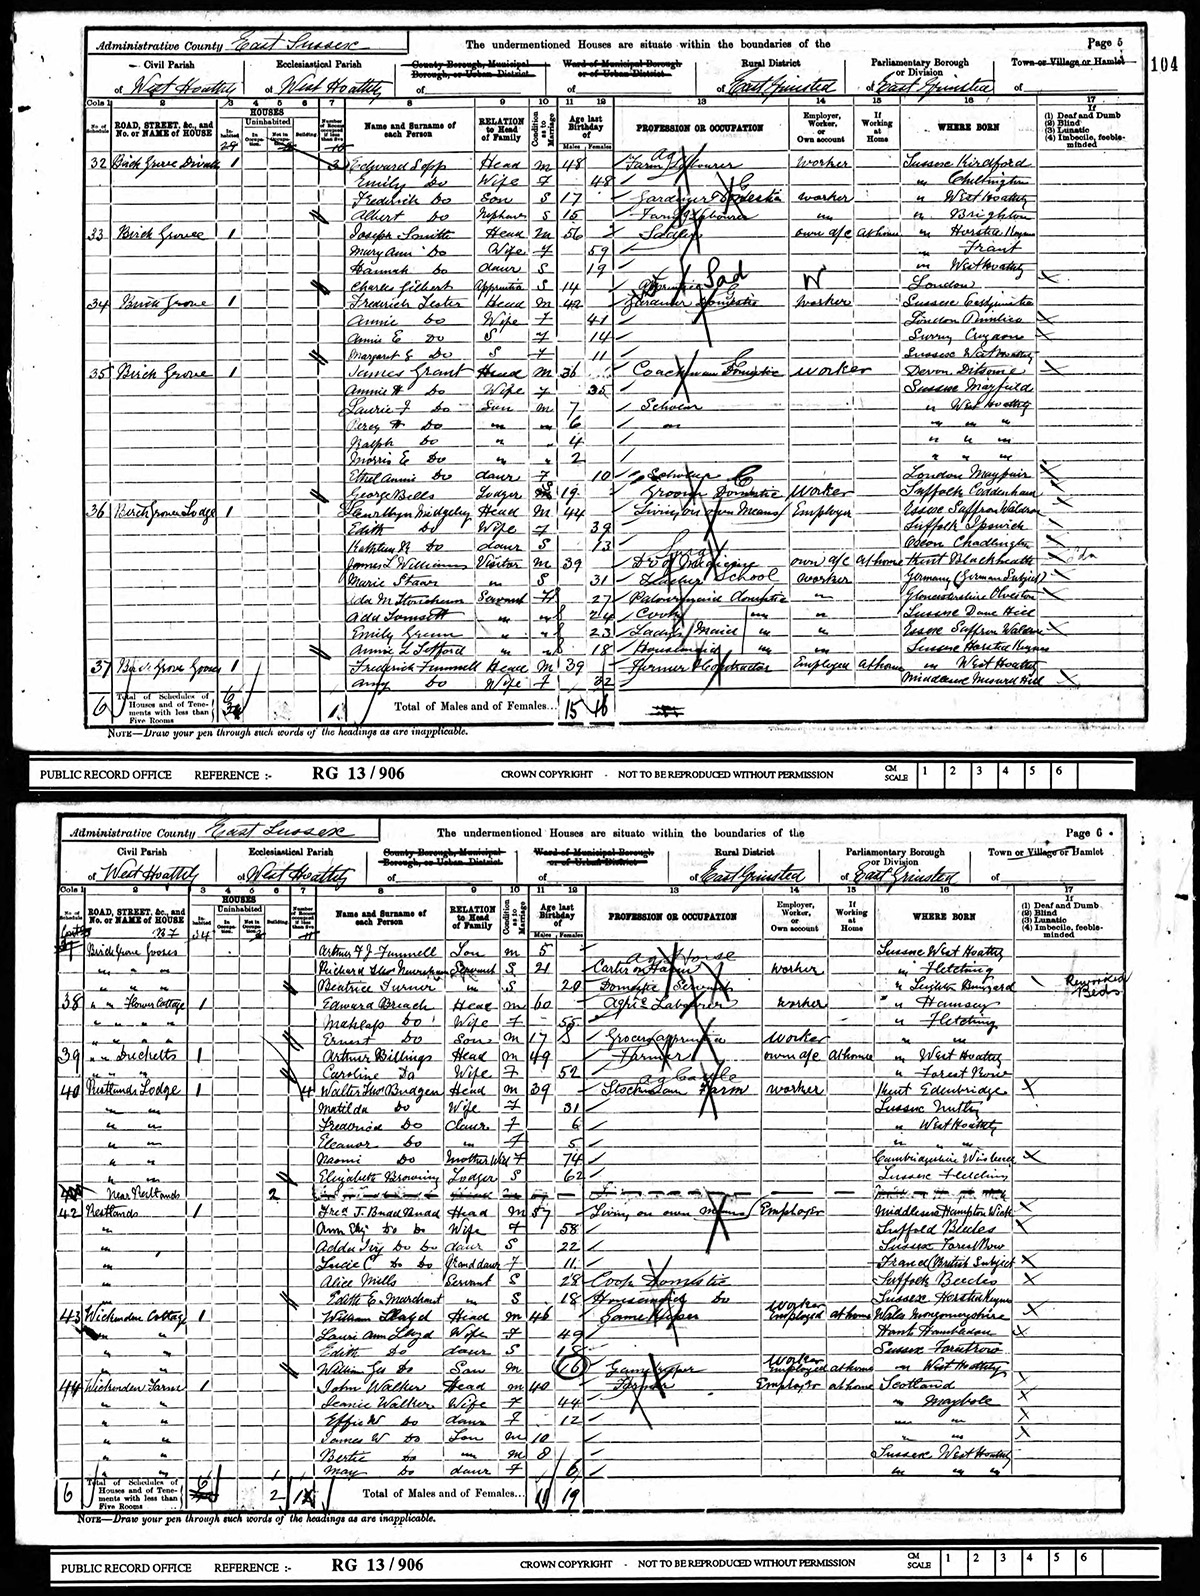 Administrative County East Sussex The undermentioned Houses are situate within the boundaries of the Page 5
104
Civil Parish Ecclesiastical Parish County Borough, Municipal Borough, or Urban District Ward of Municipal Borough or of Urban District Rural District Parliamentary Borough or Division Town or Village or Hamlet
of West Hoathly of West Hoathly of of of East Grinsted of East Grinsted of
Cols 1 2 3 4 5 6 7 8 9 10 11 12 13 14 15 16 17
No. of Schedule ROAD, STREET, &c., and No. or NAME of HOUSE HOUSES Inhabited Uninhabited In Occupation Not in Occupation Building Number of Rooms occupied if less than five Name and Surname of each Person RELATION to Head of Family Condition as to Marriage Age last Birthday of Males Females PROFESSION OR OCCUPATION Employer, Worker, or Own account If Working at Home WHERE BORN If (1) Deaf and Dumb (2) Blind (3) Lunatic (4) Imbecile, feeble-minded
32 Birch Grove 1 3 Edward Head M 48 Farm Labourer Ag worker Sussex Kirdford
Emily Do Wife F 48 " Chiltington
Frederick Do Son S 17 Gardener Domestic worker " West Hoathly
Albert Do Nephew S 15 Farm Labourer " " Brighton
33 Birch Grove 1 Joseph Smith Head M 56 Sadler own a/c At home " Horsted Keynes
Mary Ann Do Wife F 59 " Frant
Hannah Do daur S 19 " West Hoathly
Charles Gilbert Apprentice S 14 Apprentice Sad W London
34 Birch Grove 1 Frederick Head M 42 Gardener Domestic worker Sussex
Annie Do Wife F 41 London Pimlico
Annie E Do S F 14 Surrey Croydon
Margaret G Do S F 11 Sussex West Hoathly
35 Birch Grove 1 James Grant Head M 36 Coachman Domestic worker Devon
Annie H Do Wife F 35 Sussex Mayfield
Laurie J Do Son M 7 Scholar " West Hoathly
Percy H Do " " 6 " " " "
Ralph Do " " 4 " " "
Morris E Do " " 2 " " "
Ethel Annie Do daur F 10 Scholar London Mayfair
George Lodger S 19 Groom Domestic worker Suffolk Coddenham
36 Birch Grove Lodge 1 Midgeley Head M 44 Living on own Means Employer Essex Saffron Walden
Edith Do Wife F 39 Suffolk Ipswich
Kathleen R Do daur S 13 Oxon Chadlington
James L Williams Visitor M 39 own a/c at home Kent Blackheath
Marie " S 31 School worker Germany (German Subject)
Ada M Servant 27 Parlourmaid domestic " Gloucestershire Olveston
Ada " " 24 Cook " " Sussex Dane Hill
Emily Green " " 23 Ladys Maid " " Essex Saffron Walden
Annie L " " 18 Housemaid " " Sussex Horsted Keynes
37 Birch Grove 1 Frederick Funnell Head M 39 Farmer Contractor Employer at home " West Hoathly
Amy Do Wife F 32 Middlesex
6 Total of Schedules of Houses and of Tenements with less than Five Rooms 6 1 Total of Males and of Females... 15 16
NOTE—Draw your pen through such words of the headings as are inapplicable.
PUBLIC RECORD OFFICE REFERENCE :- RG 13 / 906 CROWN COPYRIGHT - NOT TO BE REPRODUCED WITHOUT PERMISSION CM SCALE 1 2 3 4 5 6
Administrative County East Sussex The undermentioned Houses are situate within the boundaries of the Page 6
Civil Parish Ecclesiastical Parish County Borough, Municipal Borough, or Urban District Ward of Municipal Borough or of Urban District Rural District Parliamentary Borough or Division Town or Village or Hamlet
of West Hoathly of West Hoathly of of of East Grinsted of East Grinsted of
Cols 1 2 3 4 5 6 7 8 9 10 11 12 13 14 15 16 17
No. of Schedule ROAD, STREET, &c., and No. or NAME of HOUSE HOUSES Inhabited Uninhabited In Occupation Not in Occupation Building Number of Rooms occupied if less than five Name and Surname of each Person RELATION to Head of Family Condition as to Marriage Age last Birthday of Males Females PROFESSION OR OCCUPATION Employer, Worker, or Own account If Working at Home WHERE BORN If (1) Deaf and Dumb (2) Blind (3) Lunatic (4) Imbecile, feeble-minded
37 Birch Grove Arthur F J Funnell Son M 5 Sussex West Hoathly
" " " Richard Servant S 21 Carter on Farm Ag Horse worker " Fletching
" " " Beatrice Turner " S 20 Domestic Servant " Leighton Buzzard
38 " " Flower Cottage 1 Edward Head M 60 Agric Labourer worker " Hamsey
" " " Do Wife F 55 " Fletching
" " " Ernest Do Son M 17 Grocers apprentice Worker " "
39 " " 1 Arthur Billings Head M 49 Farmer own a/c At home " West Hoathly
" " " Caroline Do Wife F 52 " Forest Row
40 Nutlands Lodge 1 4 Walter Budgen Head M 39 Stockman Farm Ag Cattle worker Kent Edenbridge
" " Matilda Do Wife F 31 Sussex Nutley
" " Do daur F 6 " West Hoathly
" " Eleanor Do " F 5 " " "
" " Naomi Do Mother F 74 Cambridgeshire Wisbech
" " Elizabeth Browning Lodger S 62 Sussex Fletching
Near 2
42 1 Fred J. Budd Budd Head M 57 Living on own means Employer Middlesex Hampton Wick
" Ann Do Do Wife F 58 Suffolk Beccles
" Do Do daur S 22 Sussex Forest Row
" Lucie C Do Do Grand daur F 11 France (British Subject)
" Alice Mills Servant S 28 Cook Domestic Suffolk Beccles
" Edith E Marchant " S 18 Housemaid Do Sussex Horsted Keynes
43 Wickenden Cottage 1 William Lloyd Head M 46 Game Keeper Worker at home Wales Montgomeryshire
" " Ann Lloyd Wife F 49 Hants Hambledon
" " Edith Do daur S 18 Sussex
" " William Do Son M 16 Gamekeeper Worker at home " West Hoathly
44 Wickenden Farm 1 John Walker Head M 40 Farmer Employer at home Scotland
" " Jeanie Walker Wife F 44 " Maybole
" " Effie W Do daur F 12 " "
" " James W Do Son M 10 " "
" " Bertie Do " M 8 Sussex West Hoathly
" " May Do daur F 6 " " "
6 Total of Schedules of Houses and of Tenements with less than Five Rooms 6 2 1 Total of Males and of Females... 11 19
NOTE—Draw your pen through such words of the headings as are inapplicable.
PUBLIC RECORD OFFICE REFERENCE :- RG 13 / 906 CROWN COPYRIGHT - NOT TO BE REPRODUCED WITHOUT PERMISSION CM SCALE 1 2 3 4 5 6